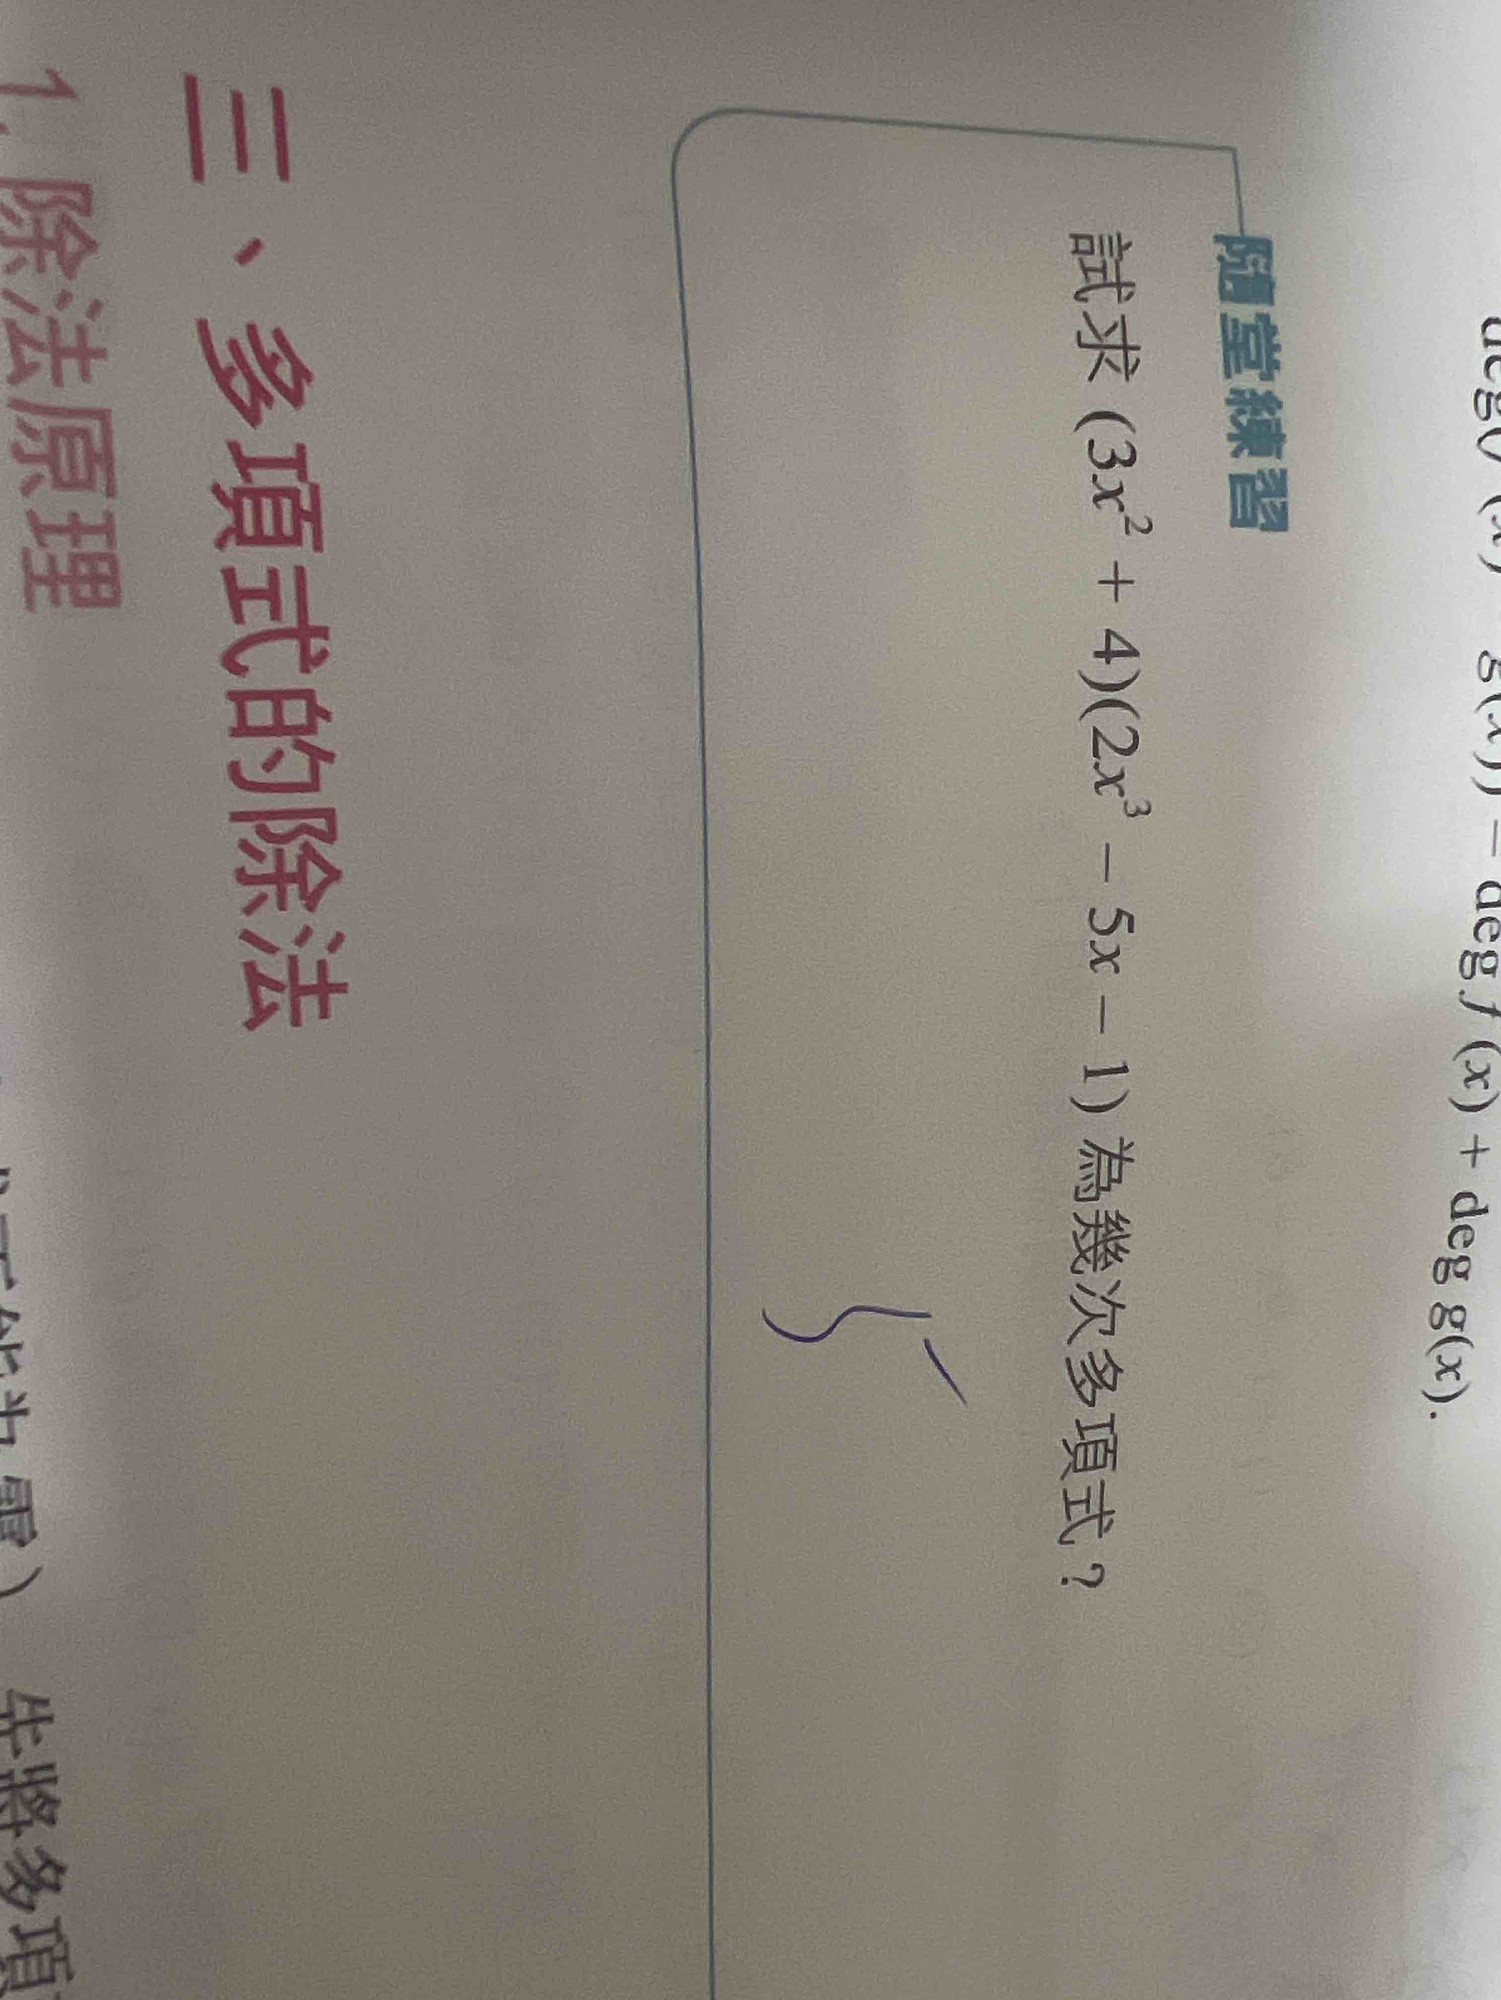 deg(f(x) g(x)) = deg f(x) + deg g(x).
隨堂練習
試求 (3x² + 4)(2x³ − 5x − 1) 為幾次多項式？
5
三、多項式的除法
1. 除法原理
不能為零) 先將多項